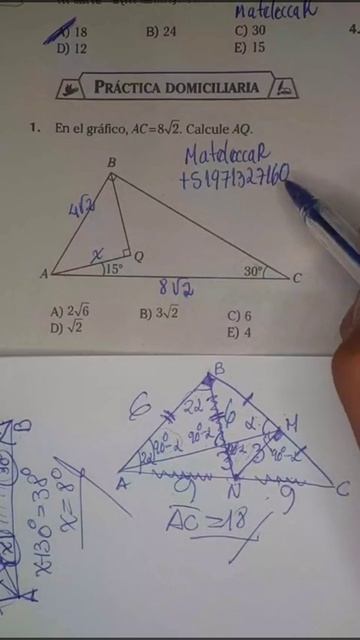 MateleccaR
A) 18
B) 24
C) 30
4.
D) 12
E) 15
PRÁCTICA DOMICILIARIA
1. En el gráfico, AC=8√2. Calcule AQ.
MateleccaR
+51971327160
B
4√2
x
Q
A
15°
30°
C
8√2
A) 2√6
B) 3√2
C) 6
D) √2
E) 4
B
6
6
M
A
9
N
9
C
AC = 18
x+30°=38°
x=8°